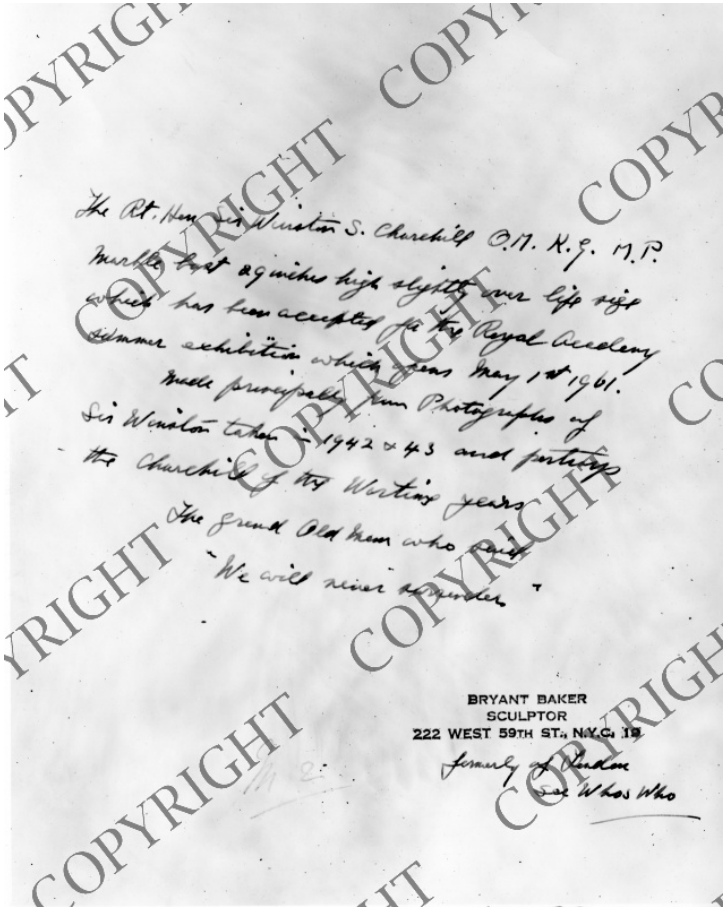 The Rt. Hon. Sir Winston S. Churchill O.M. K.G. M.P.
Marble bust 29 inches high slightly over life size
which has been accepted for the Royal Academy
summer exhibition which opens May 1st 1961.
Made principally from Photographs of
Sir Winston taken in 1942 & 43 and portrays
the Churchill of the Wartime years
The grand Old Man who said
"We will never surrender"
BRYANT BAKER
SCULPTOR
222 WEST 59TH ST., N.Y.C. 19
formerly of London
See Whos Who
COPYRIGHT
COPYRIGHT
COPYRIGHT
COPYRIGHT
COPYRIGHT
COPYRIGHT
COPYRIGHT
COPYRIGHT